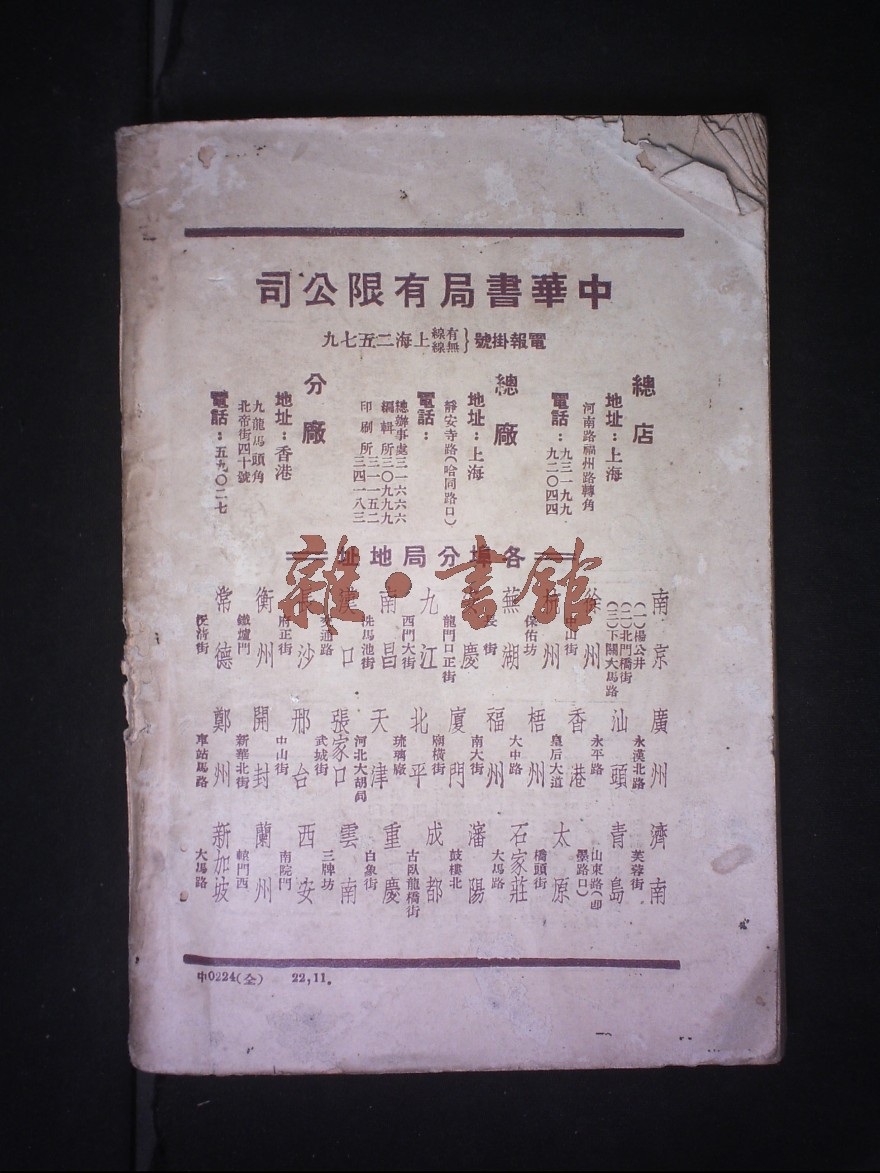 中華書局有限公司
電報掛號{有線無線}上海二五七九
總店
地址：上海
河南路福州路轉角
電話：九三一九九
九二〇四四
總廠
地址：上海
靜安寺路(哈同路口)
電話：
總辦事處三一六六六
編輯所三〇九九九
印刷所三一一五二
三四一八三
分廠
地址：香港
九龍馬頭角
北帝街四十號
電話：五九〇二七
各埠分局地址
南京
(一)楊公井
(二)北門橋街
(三)下關大馬路
徐州
中山街
杭州
保佑坊
蕪湖
長街
慶
龍門口正街
九江
西門大街
南昌
洗馬池街
漢口
交通路
長沙
府正街
衡州
鐵爐門
常德
廣州
永漢北路
汕頭
永平路
香港
皇后大道
梧州
大中路
福州
南大街
廈門
廟橫街
北平
琉璃廠
天津
河北大胡同
張家口
武城街
邢台
中山街
開封
新華北街
鄭州
車站馬路
濟南
芙蓉街
青島
山東路(即墨路口)
太原
橋頭街
石家莊
大馬路
瀋陽
鼓樓北
成都
古臥龍橋街
重慶
白象街
雲南
三牌坊
西安
南院門
蘭州
轅門西
新加坡
大馬路
中0224(全) 22,11.
雜·書館